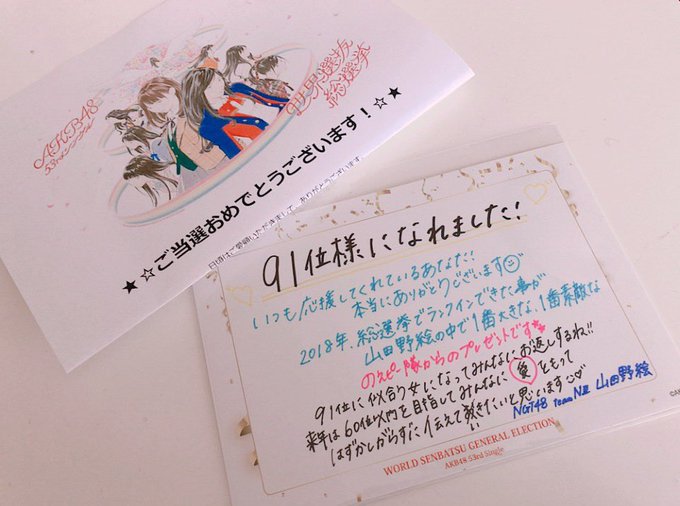 AKB48
53rdシングル
世界選抜
総選挙
★☆ご当選おめでとうございます!☆★
91位様になれました!
いつも応援してくれているあなた!
本当にありがとうございます
2018年、総選挙でランクインできた事が
山田野絵の中で1番大きな、1番素敵な
のえピー隊からのプレゼントです
91位に似合う女になってみんなにお返しするね!!
来年は60位以内を目指してみんなに愛をもって
はずかしがらずに伝えて行きたいと思います
NGT48 team NIII 山田野絵
WORLD SENBATSU GENERAL ELECTION
AKB48 53rd Single